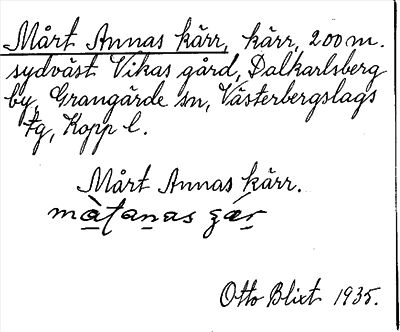 Mårt Annas kärr, kärr, 200 m.
sydväst Vikas gård, Dalkarlsberg
by, Grangärde sn, Västerbergslags
fg, Kopp l.
Mårt Annas kärr.
Otto Blixt 1935.